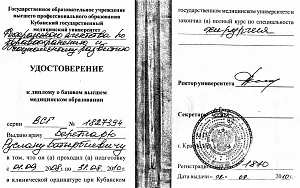 Государственное образовательное учреждение
высшего профессионального образования
Кубанский государственный
медицинский университет
Федерального агентства по
здравоохранению и
социальному развитию
УДОСТОВЕРЕНИЕ
к диплому о базовом высшем
медицинском образовании
серии ВСГ № 1827394
Выдано врачу
Руслану
в том, что он (а) проходил (а) подготовку
с 01.09 2008 по 31.08 2010г.
в клинической ординатуре при Кубанском
государственном медицинском университете и
закончил (а) полный курс по специальности
хирургия
Ректор университета
Секретарь
М.П.
г. Краснодар
Регистрационный № 1840
Дата выдачи 08 2010г.